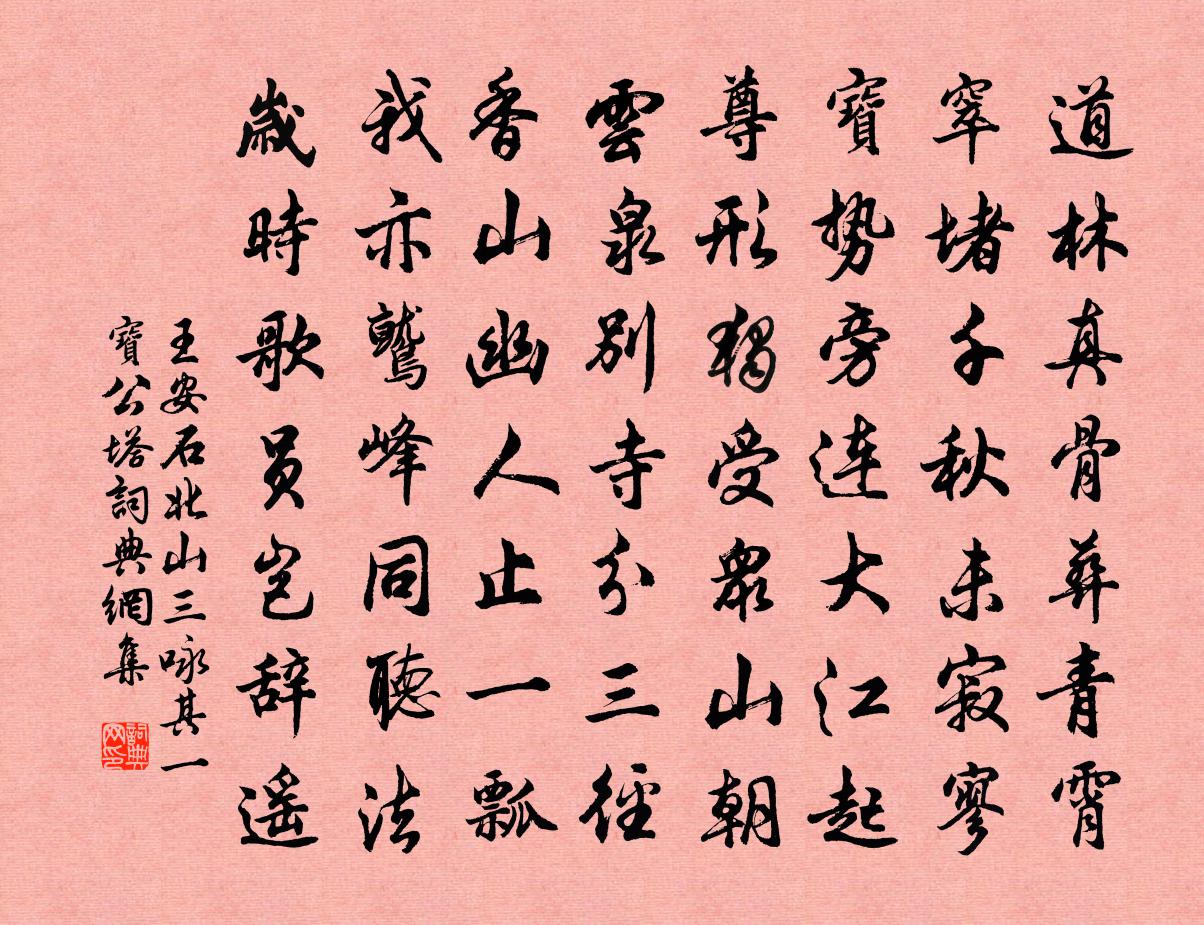 道林真骨葬青霄
窣堵千秋未寂寥
寶勢旁連大江起
尊形獨受眾山朝
雲泉別寺分三徑
香山幽人止一瓢
我亦鷲峰同聽法
歲時歌員豈辞遥
王安石北山三咏其一
寶公塔詞典網集
詞典网印